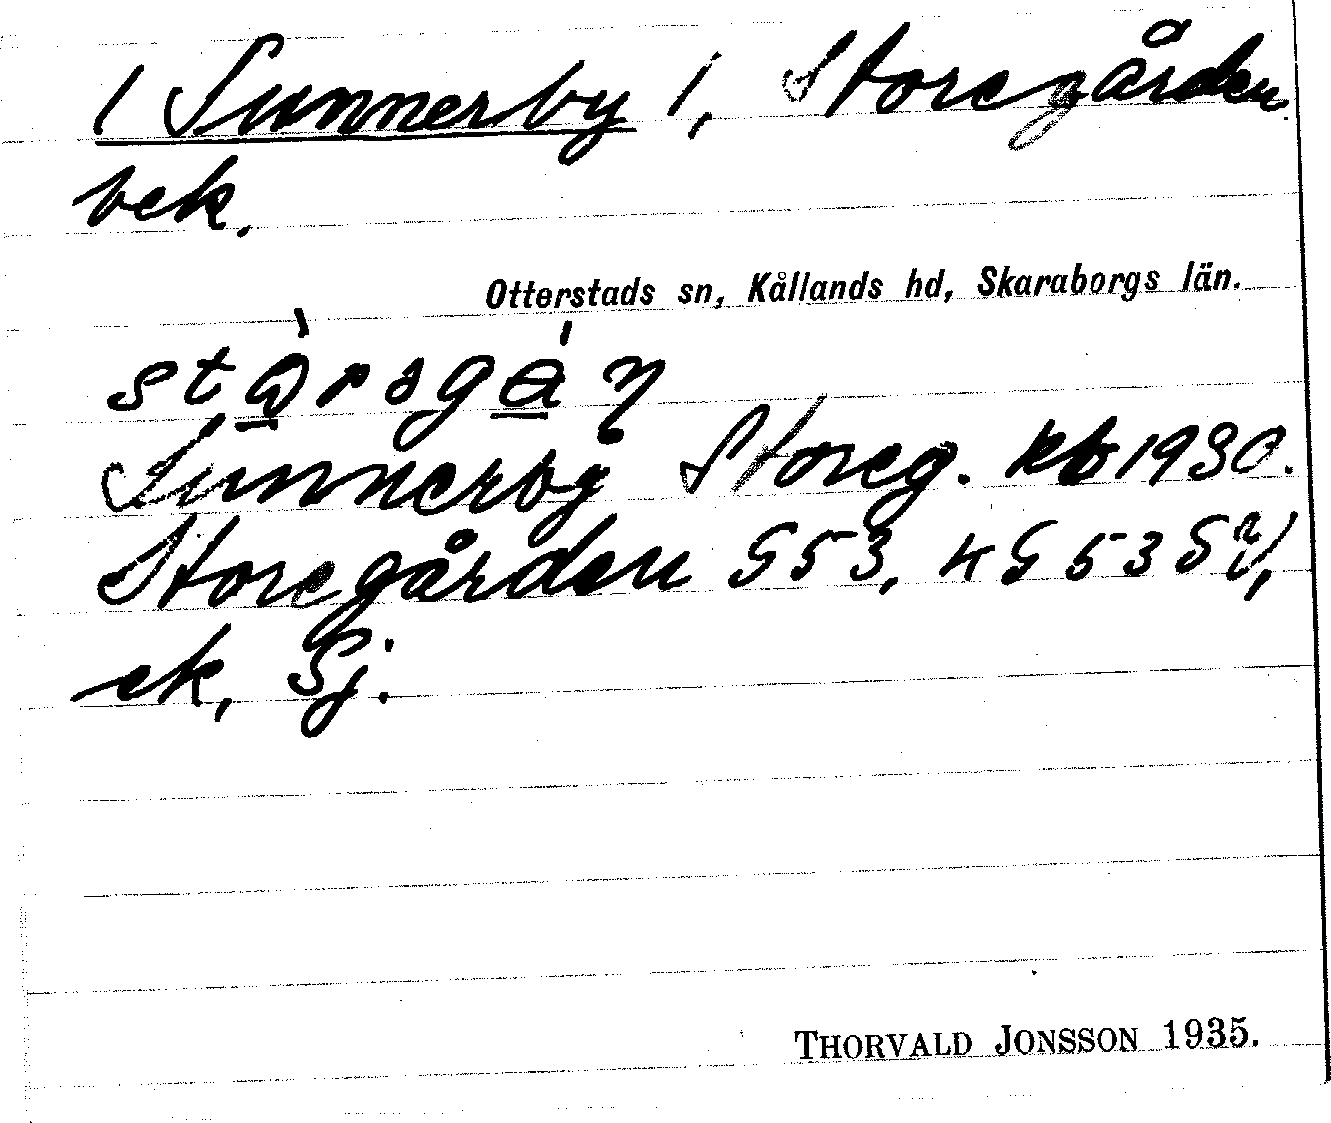 ( Sunnerby 1, Storegården
bek.
Otterstads sn, Kållands hd, Skaraborgs län.
Sunnerby Storeg. kb 1930.
Storegården G 53, kG 53 S
ek, Sj.
THORVALD JONSSON 1935.